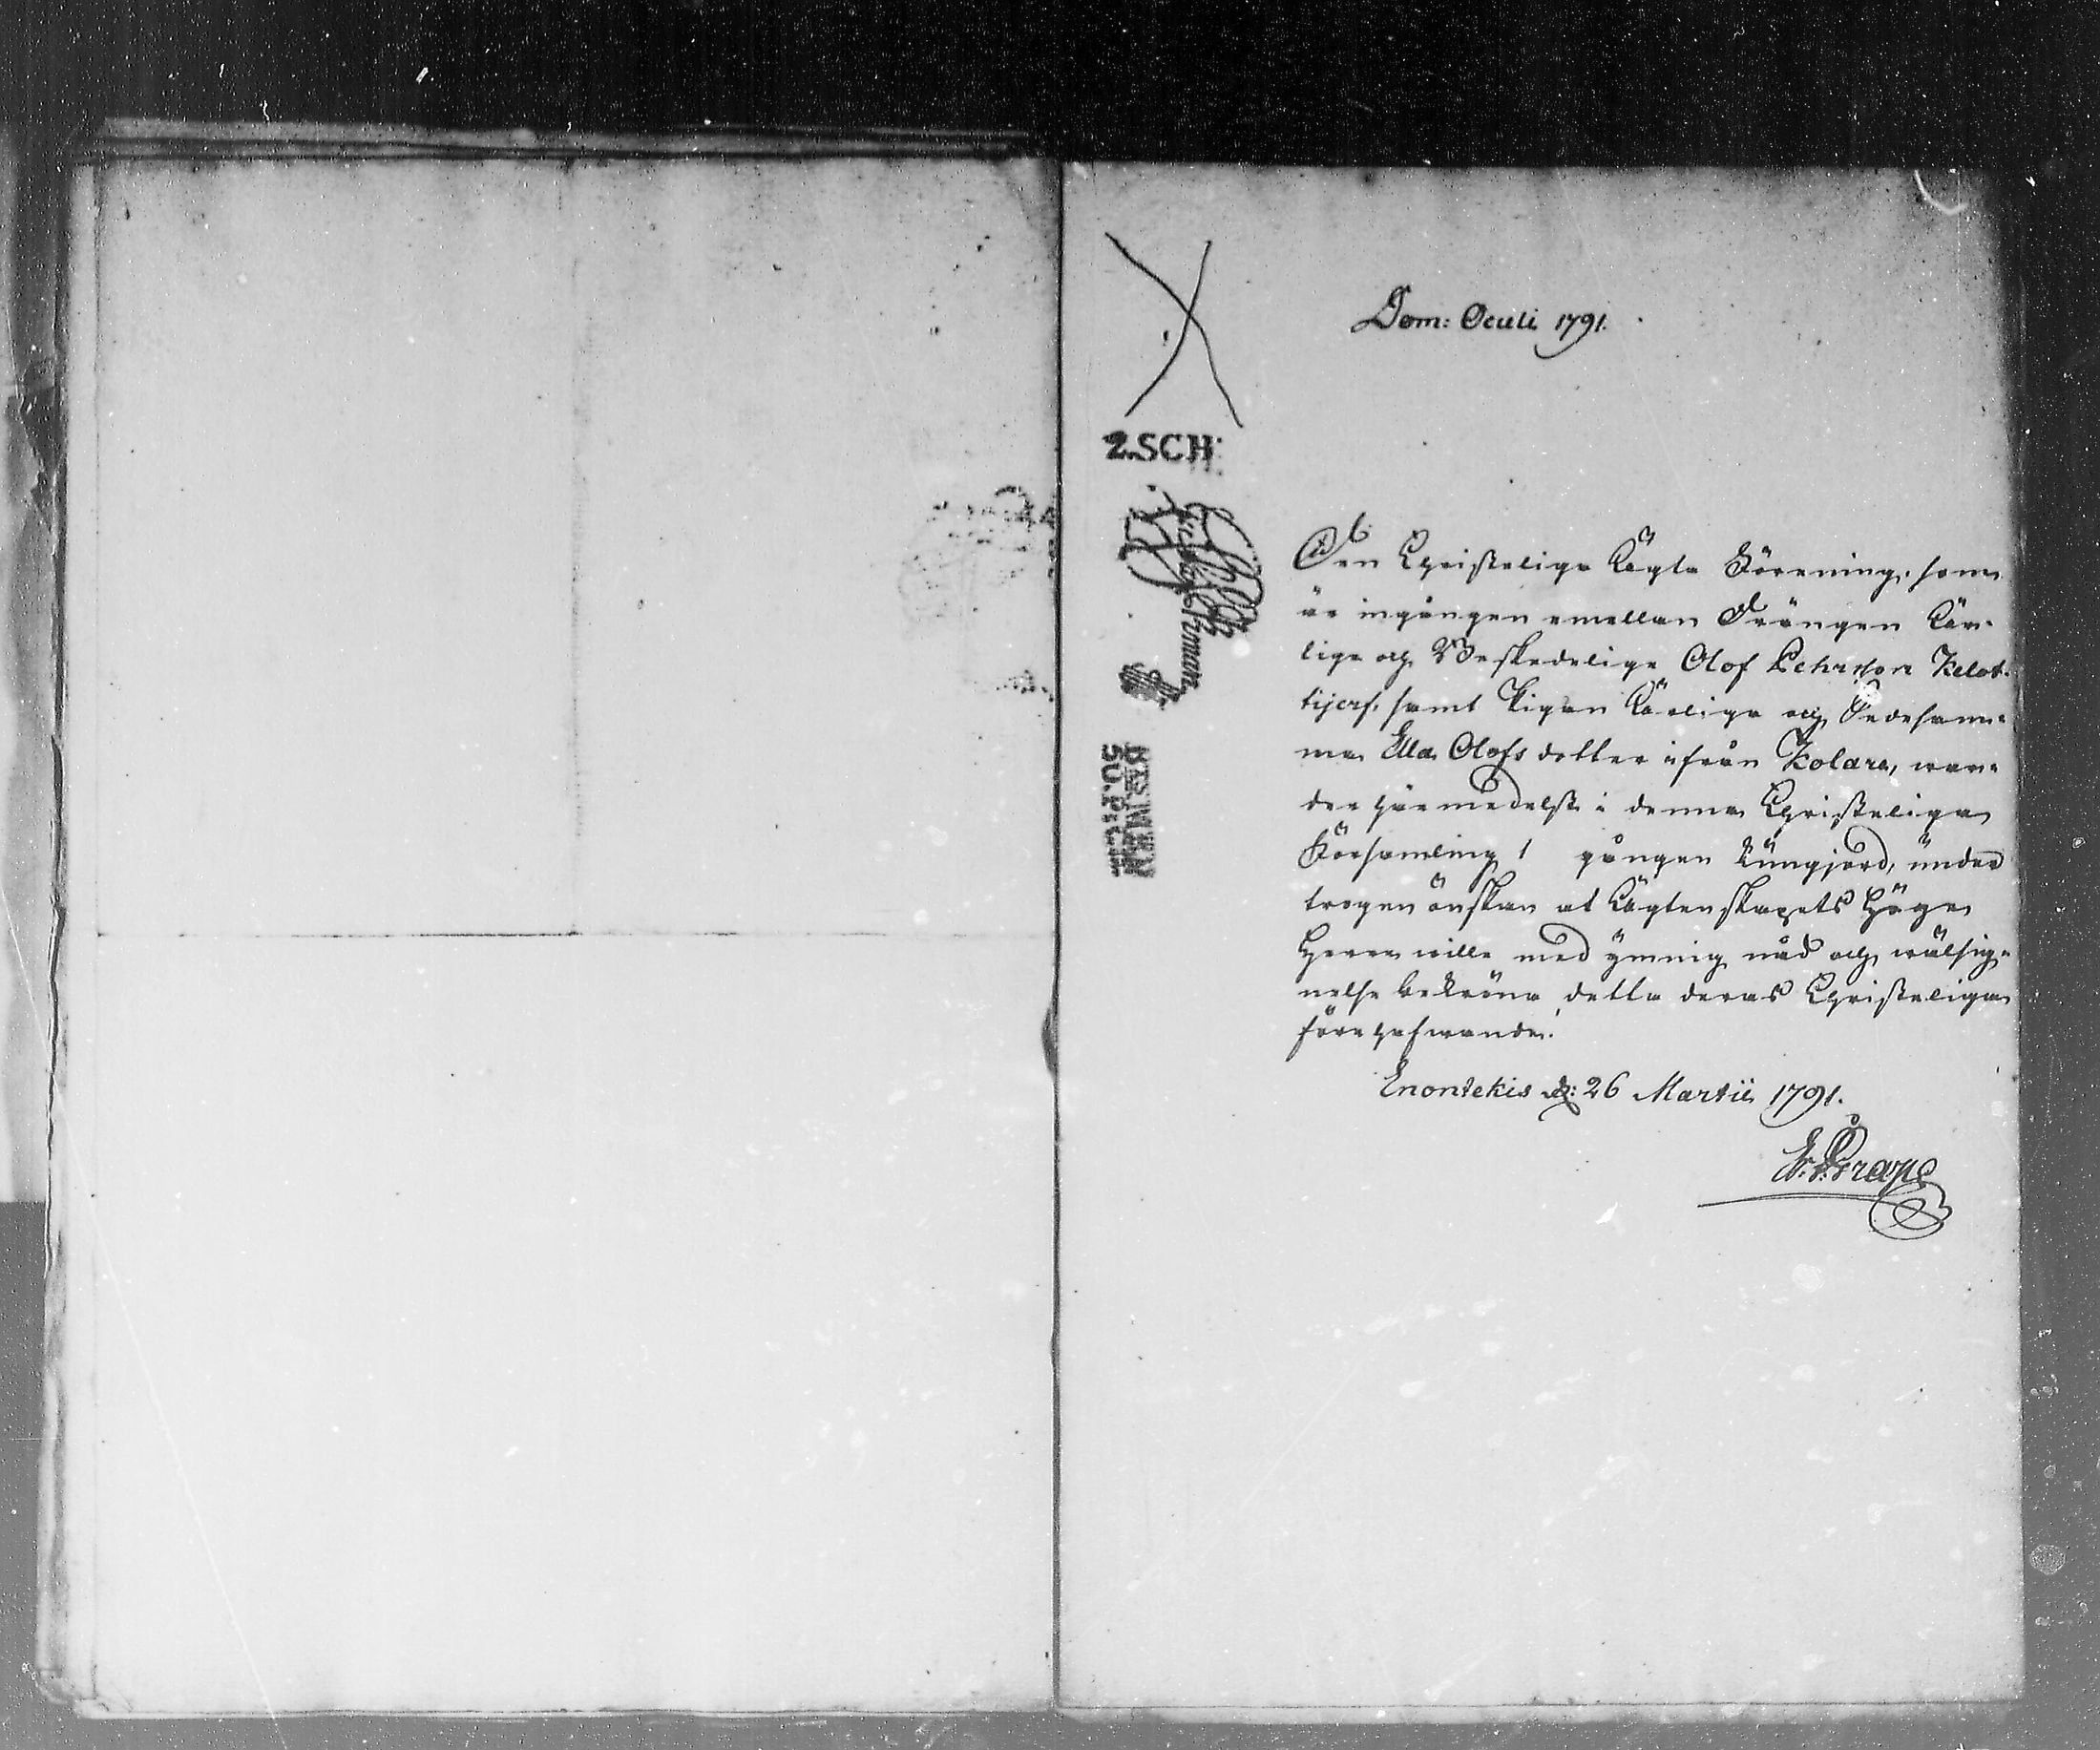 Dom: Oculi 1791.
2.SCH:
Den Christeliga Ägta Förening, som
är ingången emellan Drängen Ähr-
lige och Beskedelige Olof Pehrsson Kelot-
tijerf, samt Pigan Ährliga och Dedesam-
ma Ella Olofs dotter ifrån Kolare, war-
der härmedelst i denna Christeliga
Församling 1 gången kungjord, under
trogen önskan at Ägtenskapets Höge
Herre wille med ymnig nåd och wälsig-
nelse bekröna detta deras Christeliga
förehafwande.
Enontekis d: 26 Martii 1791.